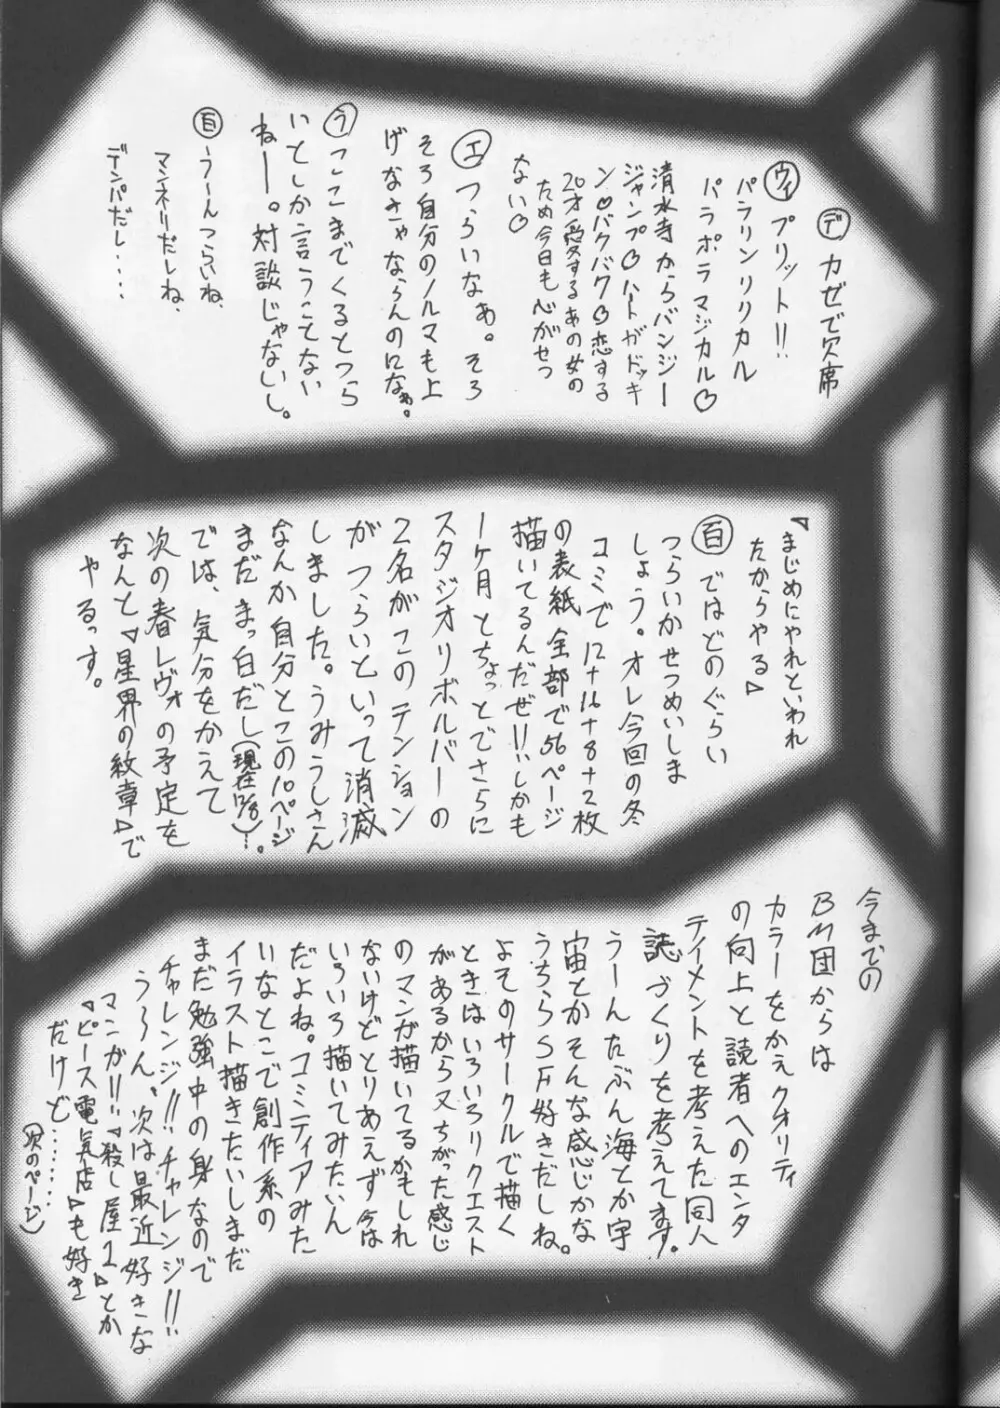 デ カゼで欠席
ウィ プリット!!
パラリンリリカル
パラポラマジカル♡
清水寺からバンジー
ジャンプ♡ハートがドッキ
ン♡バクバク♡恋する
20才愛するあの女の
ため今日も心がせつ
ない♡
エ つらいなぁ。そろ
そろ自分のノルマも上
げなきゃならんのになぁ。
う ここまでくるとつら
いとしか言うことない
ねー。対談じゃないし。
百 う〜んつらいね、
マンネリだしね、
デンパだし‥‥
「まじめにやれといわれ
たからやる」
百 ではどのぐらい
つらいかせつめいしま
しょう。オレ今回の冬
コミで12+16+8+2枚
の表紙全部で56ページ
描いてるんだぜ!!しかも
1ヶ月とちょっとでさらに
スタジオリボルバーの
2名がこのテンション
がつらいといって消滅
しました。うみうしさん
なんか自分とこの10ページ
まだまっ白だし(現在12/8)‥。
では、気分をかえて
次の春レヴォの予定を
なんと「星界の紋章」で
やるっす。
今までの
BM団からは
カラーをかえクオリティ
の向上と読者へのエンタ
テイメントを考えた同人
誌づくりを考えてます。
うーんたぶん海とか宇
宙とかそんな感じかな
うちらSF好きだしね。
よそのサークルで描く
ときはいろいろリクエスト
があるから又ちがった感じ
のマンガ描いてるかもしれ
ないけどとりあえず今は
いろいろ描いてみたいん
だよね。コミティアみた
いなとこで創作系の
イラスト描きたいしまだ
まだ勉強中の身なので
チャレンジ!!チャレンジ!!
う〜ん、次は最近好きな
マンガ!!「殺し屋1」とか
「ピース電気店」も好き
だけど‥‥‥‥
(次のページ)